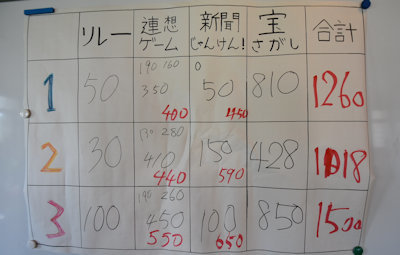 リレー 連想ゲーム 新聞じゃんけん! 宝さがし 合計
1 50 190 160 350 400 0 50 450 810 1260
2 30 130 280 410 440 150 590 428 1018
3 100 190 260 450 550 100 650 850 1500